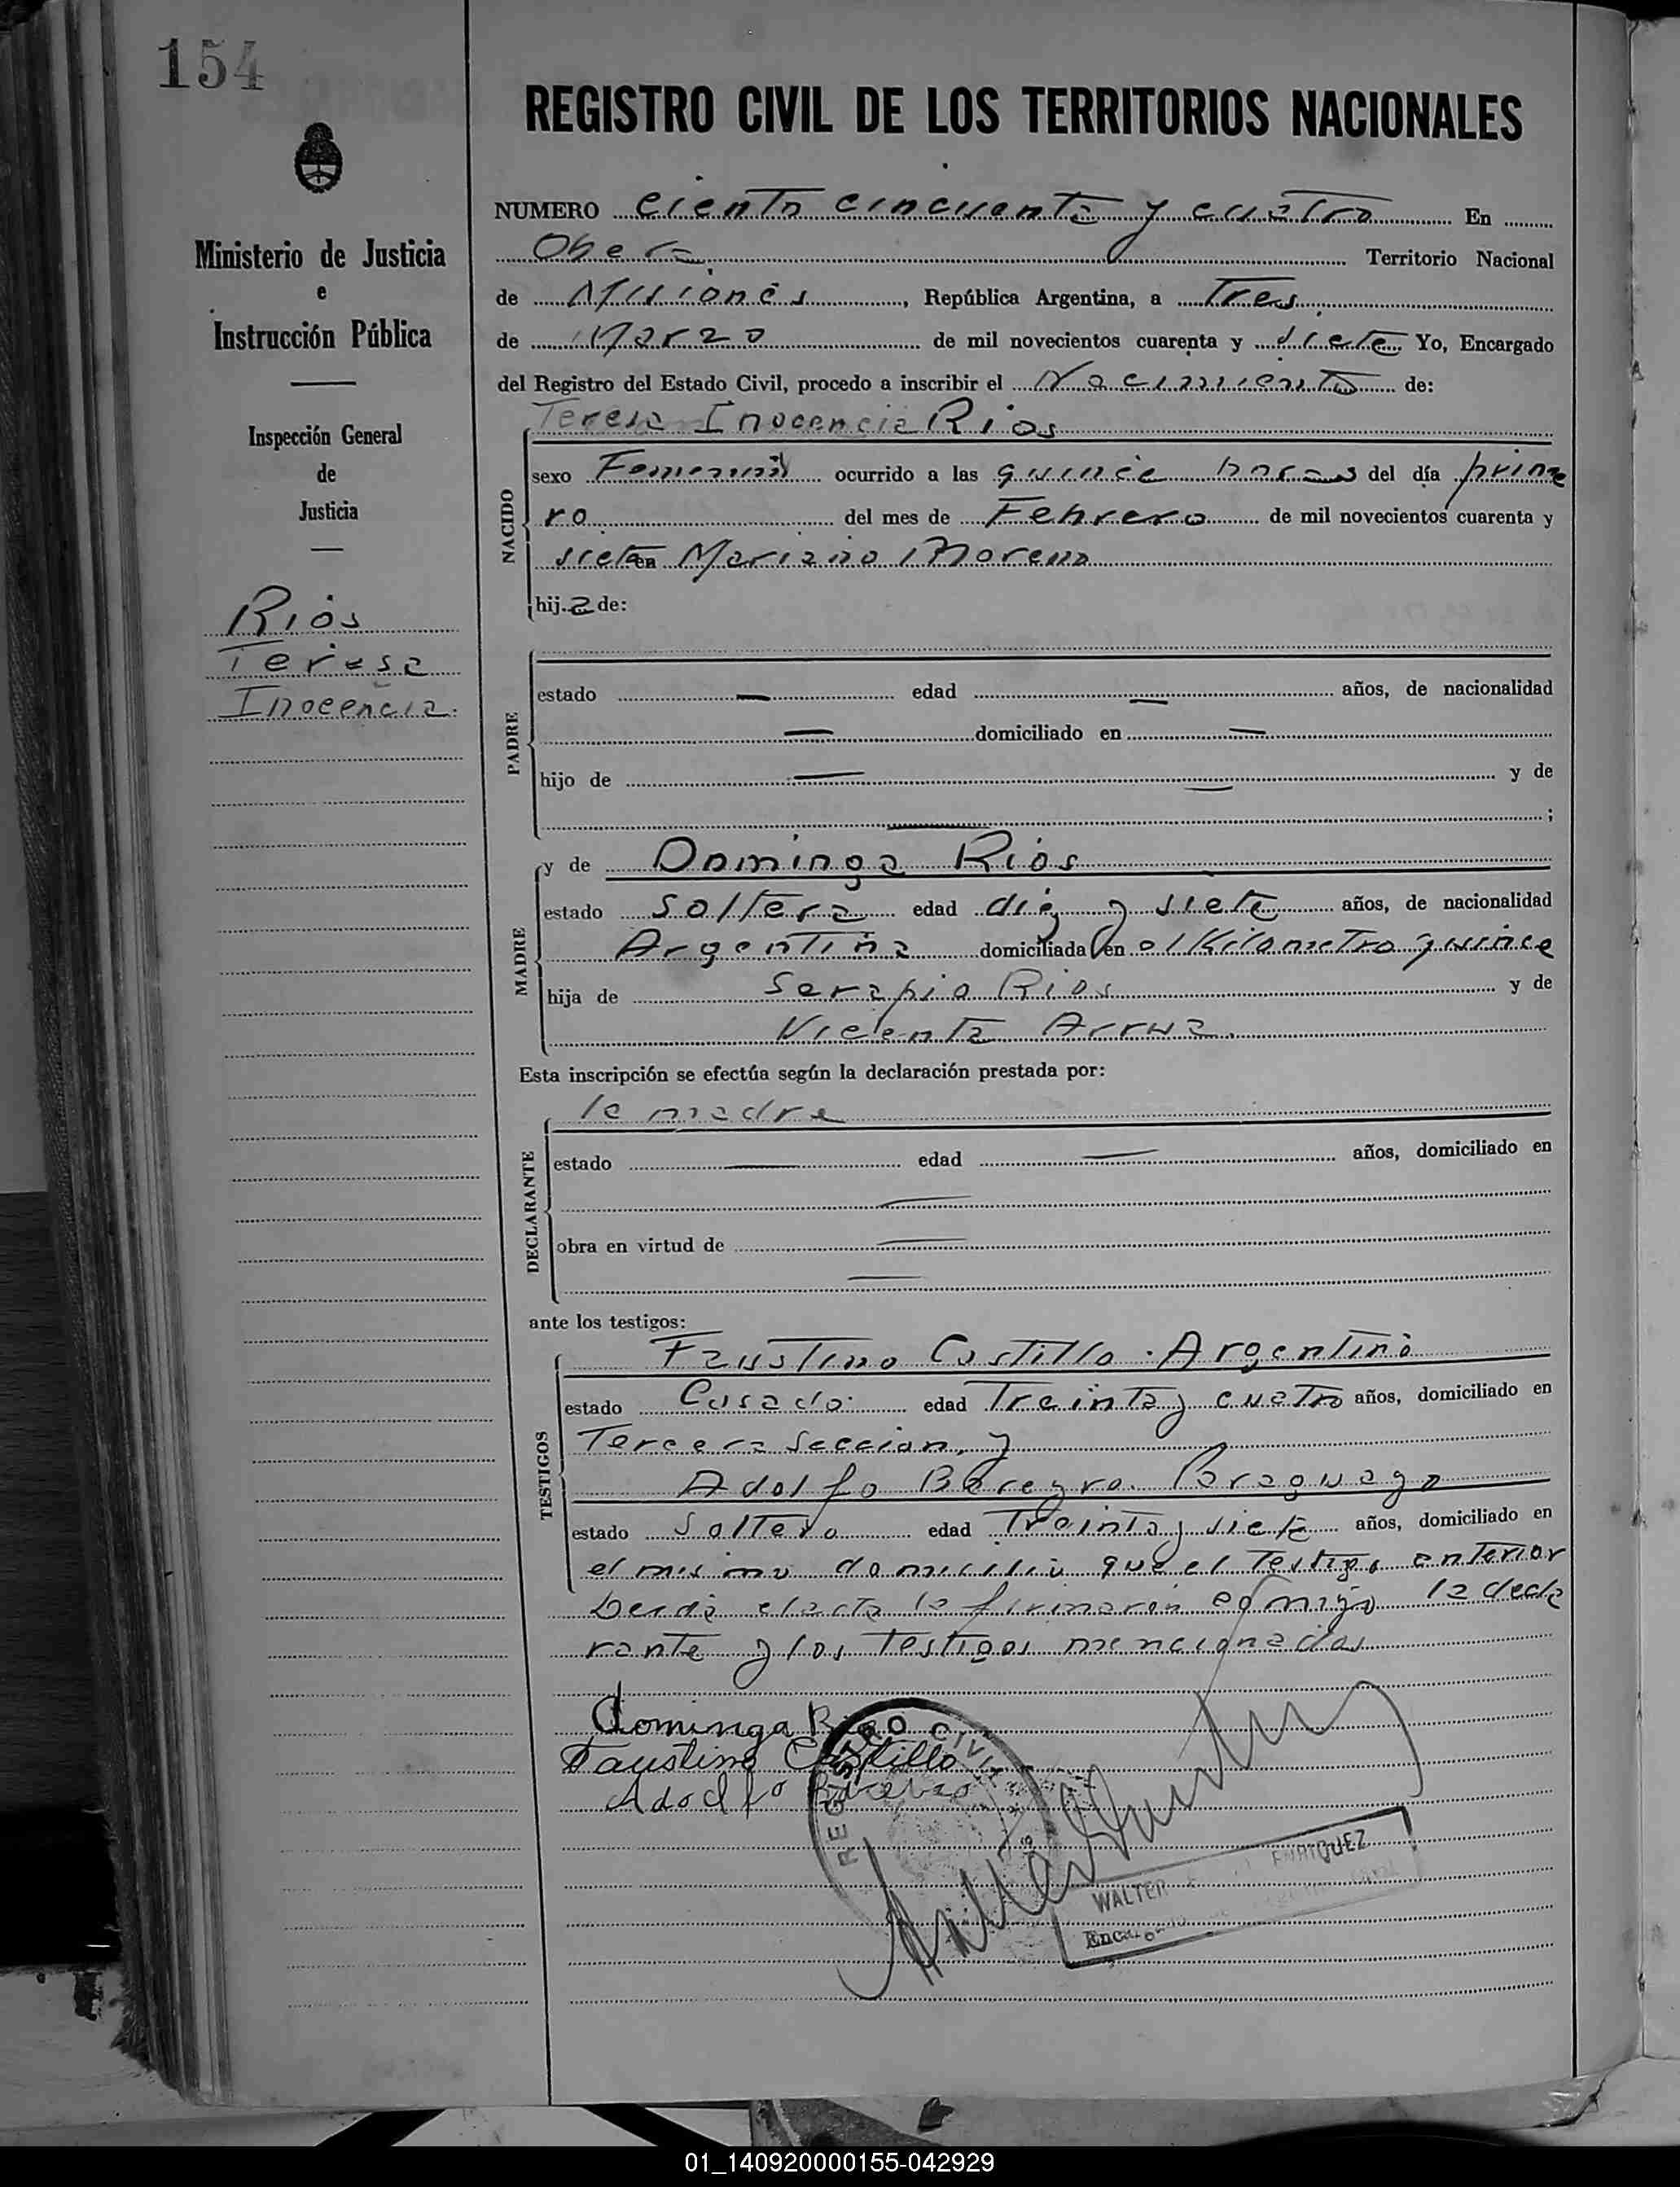 154
REGISTRO CIVIL DE LOS TERRITORIOS NACIONALES
Ministerio de Justicia
e
Instrucción Pública
Inspección General
de
Justicia
Rios
Teresa
Inocencia.
NUMERO ciento cincuenta y cuatro En
Obera Territorio Nacional
de Misiones, República Argentina, a Tres
de Marzo de mil novecientos cuarenta y siete Yo, Encargado
del Registro del Estado Civil, procedo a inscribir el Nacimiento de:
Teresa Inocencia Rios
NACIDO
sexo Femenino ocurrido a las quince horas del día prime
ro del mes de Febrero de mil novecientos cuarenta y
siete en Mariano Moreno
hij.a de:
PADRE
estado — edad — años, de nacionalidad
— domiciliado en —
hijo de — y de
— ;
MADRE
y de Dominga Rios
estado soltera edad diez y siete años, de nacionalidad
Argentina domiciliada en el Kilometro quince
hija de Serapio Rios y de
Vicenta Arrua.
Esta inscripción se efectúa según la declaración prestada por:
la madre
DECLARANTE
estado — edad — años, domiciliado en
—
obra en virtud de —
—
ante los testigos:
TESTIGOS
Faustino Castillo. Argentino
estado Casado. edad Treinta y cuatro años, domiciliado en
Tercera Seccion, y
Adolfo Bareyro. Paraguayo
estado Soltero edad Treinta y siete años, domiciliado en
el mismo domicilio que el Testigo anterior
Leida el acta la firmaron conmigo la decla
rante y los Testigos mencionados
dominga Rios
Faustino Castillo
Adolfo
REGISTRO CIVIL
WALTER ENRIQUEZ
01_140920000155-042929